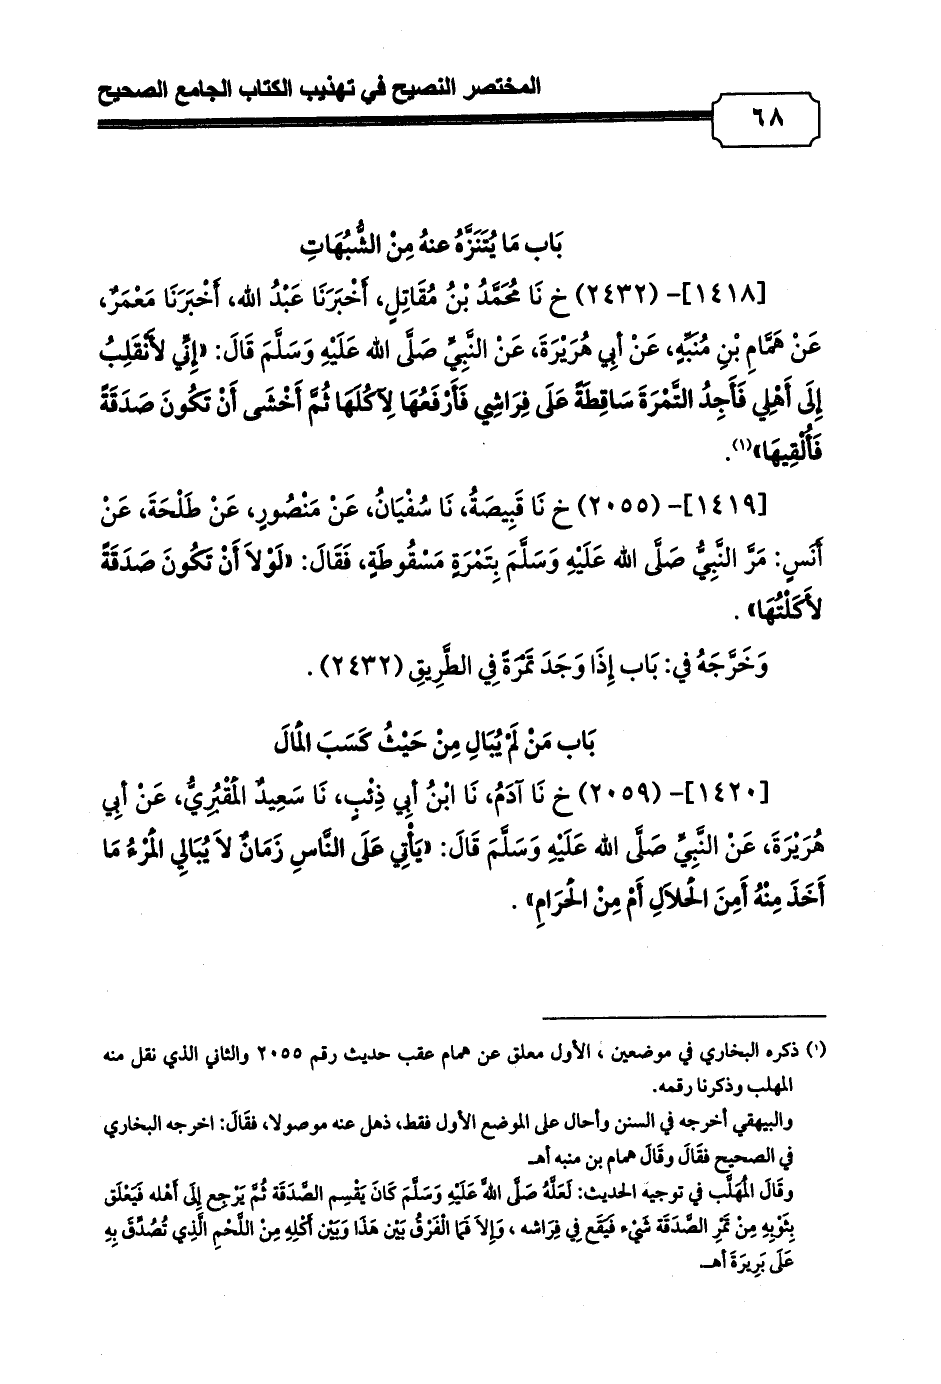 المختصر النصيح في تهذيب الكتاب الجامع الصحيح
٦٨
بَاب مَا يُتَنَزَّهُ عنهُ مِنْ الشُّبُهَاتِ
[١٤١٨]- (٢٤٣٢) خ نَا مُحَمَّدُ بْنُ مُقَاتِلٍ، أَخْبَرَنَا عَبْدُ الله، أَخْبَرَنَا مَعْمَرٌ،
عَنْ هَمَّامِ بْنِ مُنَبِّهٍ، عَنْ أبِي هُرَيْرَةَ، عَنْ النَّبِيِّ صَلَّى الله عَلَيْهِ وَسَلَّمَ قَالَ: «إِنِّي لأَنْقَلِبُ
إِلَى أَهْلِي فَأَجِدُ التَّمْرَةَ سَاقِطَةً عَلَى فِرَاشِي فَأَرْفَعُهَا لِآكُلَهَا ثُمَّ أَخْشَى أَنْ تَكُونَ صَدَقَةً
فَأُلْقِيهَا»(١).
[١٤١٩]- (٢٠٥٥) خ نَا قَبِيصَةُ، نَا سُفْيَانُ، عَنْ مَنْصُورٍ، عَنْ طَلْحَةَ، عَنْ
أَنَسٍ: مَرَّ النَّبِيُّ صَلَّى الله عَلَيْهِ وَسَلَّمَ بِتَمْرَةٍ مَسْقُوطَةٍ، فَقَالَ: «لَوْلاَ أَنْ تَكُونَ صَدَقَةً
لأَكَلْتُهَا» .
وَخَرَّجَهُ في: بَاب إِذَا وَجَدَ تَمْرَةً فِي الطَّرِيقِ (٢٤٣٢) .
بَاب مَنْ لَمْ يُبَالِ مِنْ حَيْثُ كَسَبَ المْالَ
[١٤٢٠]- (٢٠٥٩) خ نَا آدَمُ، نَا ابْنُ أبِي ذِئْبٍ، نَا سَعِيدٌ المْقْبُرِيُّ، عَنْ أبِي
هُرَيْرَةَ، عَنْ النَّبِيِّ صَلَّى الله عَلَيْهِ وَسَلَّمَ قَالَ: «يَأْتِي عَلَى النَّاسِ زَمَانٌ لاَ يُبَالِي المْرْءُ مَا
أَخَذَ مِنْهُ أَمِنَ الْحَلاَلِ أَمْ مِنْ الْحَرَامِ» .
(١) ذكره البخاري في موضعين ، الأول معلق عن همام عقب حديث رقم ٢٠٥٥ والثاني الذي نقل منه
المهلب وذكرنا رقمه.
والبيهقي أخرجه في السنن وأحال على الموضع الأول فقط، ذهل عنه موصولا، فقَالَ: اخرجه البخاري
في الصحيح فقَالَ وقَالَ همام بن منبه أهـ
وقَالَ المُهَلَّب في توجيه الحديث: لَعَلَّهُ صَلَّى اللَّه عَلَيْهِ وَسَلَّمَ كَانَ يَقْسِم الصَّدَقَة ثُمَّ يَرْجِع إِلَى أَهْله فَيَعْلَق
بِثَوْبِهِ مِنْ تَمْرِ الصَّدَقَة شَيْء فَيَقَع فِي فِرَاشه ، وَإِلاَ فَمَا الْفَرْقُ بَيْن هَذَا وَبَيْن أَكْلِهِ مِنْ اللَّحْمِ الَّذِي تُصُدِّقَ بِهِ
عَلَى بَرِيرَةَ أهـ